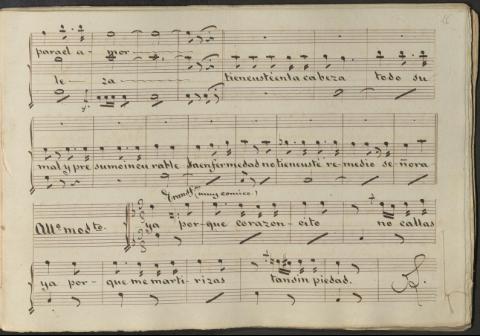 para el a- mor
le- za tiene usté en la cabeza todo su
mal y pre sumo incu rable la enfermedad no tiene usté re-medio se-ñora
(muy comico!)
All.º modto. ya por-que corazon-cito no callas
ya por-que me marti-rizas tan sin piedad.